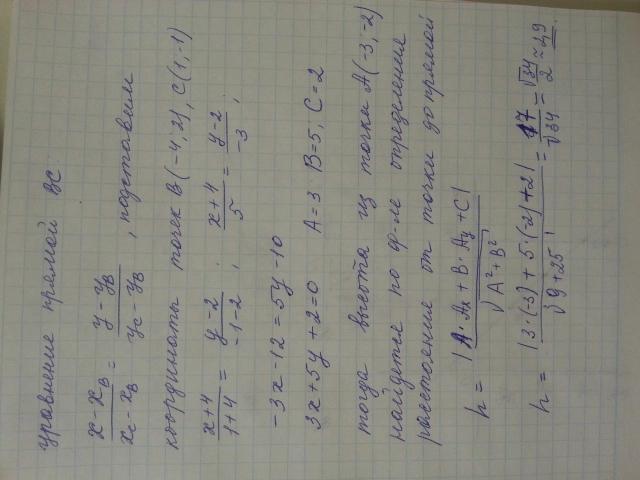 уравнение прямой BC
x - x_B / x_C - x_B = y - y_B / y_C - y_B , подставим
координаты точек B(-4, 2), C(1, -1)
x+4 / 1+4 = y-2 / -1-2 ; x+4 / 5 = y-2 / -3 ,
-3x - 12 = 5y - 10
3x + 5y + 2 = 0 A = 3 B = 5, C = 2
тогда высота из точки A(-3, -2)
найдется по ф-ле определения
расстояние от точки до прямой
h = |A·Ax + B·Ay + C| / √A² + B²
h = |3·(-3) + 5·(-2) + 2| / √9 + 25 = 17 / √34 = √34 / 2 ≈ 2,9